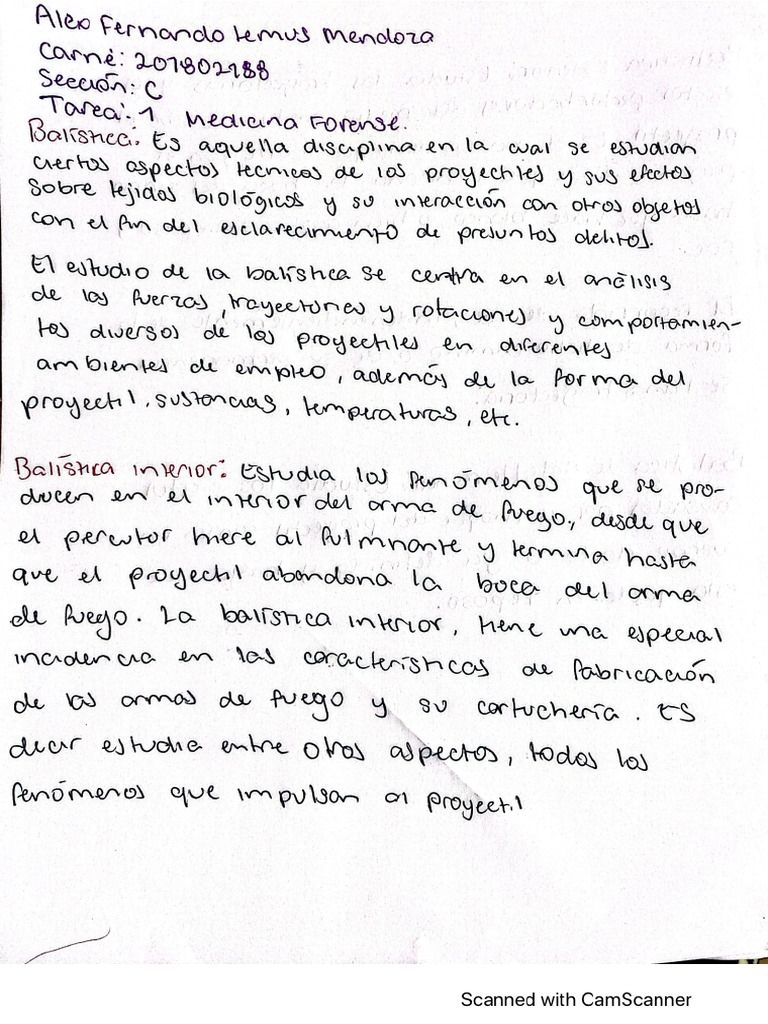 Alex Fernando Lemus Mendoza
Carné: 201802988
Sección: C
Tarea: 1 Medicina Forense.
Balística: Es aquella disciplina en la cual se estudian
ciertos aspectos tecnicos de los proyectiles y sus efectos
sobre tejidos biológicos y su interacción con otros objetos
con el fin del esclarecimiento de presuntos delitos.
El estudio de la balística se centra en el análisis
de las fuerzas, trayectorias y rotaciones y comportamien-
tos diversos de los proyectiles en diferentes
ambientes de empleo, además de la forma del
proyectil, sustancias, temperaturas, etc.
Balística interior: Estudia los fenómenos que se pro-
ducen en el interior del arma de fuego, desde que
el percutor hiere al fulminante y termina hasta
que el proyectil abandona la boca del arma
de fuego. La balística interior, tiene una especial
incidencia en las características de fabricación
de las armas de fuego y su cartuchería. Es
decir estudia entre otros aspectos, todos los
fenómenos que impulsan al proyectil
Scanned with CamScanner